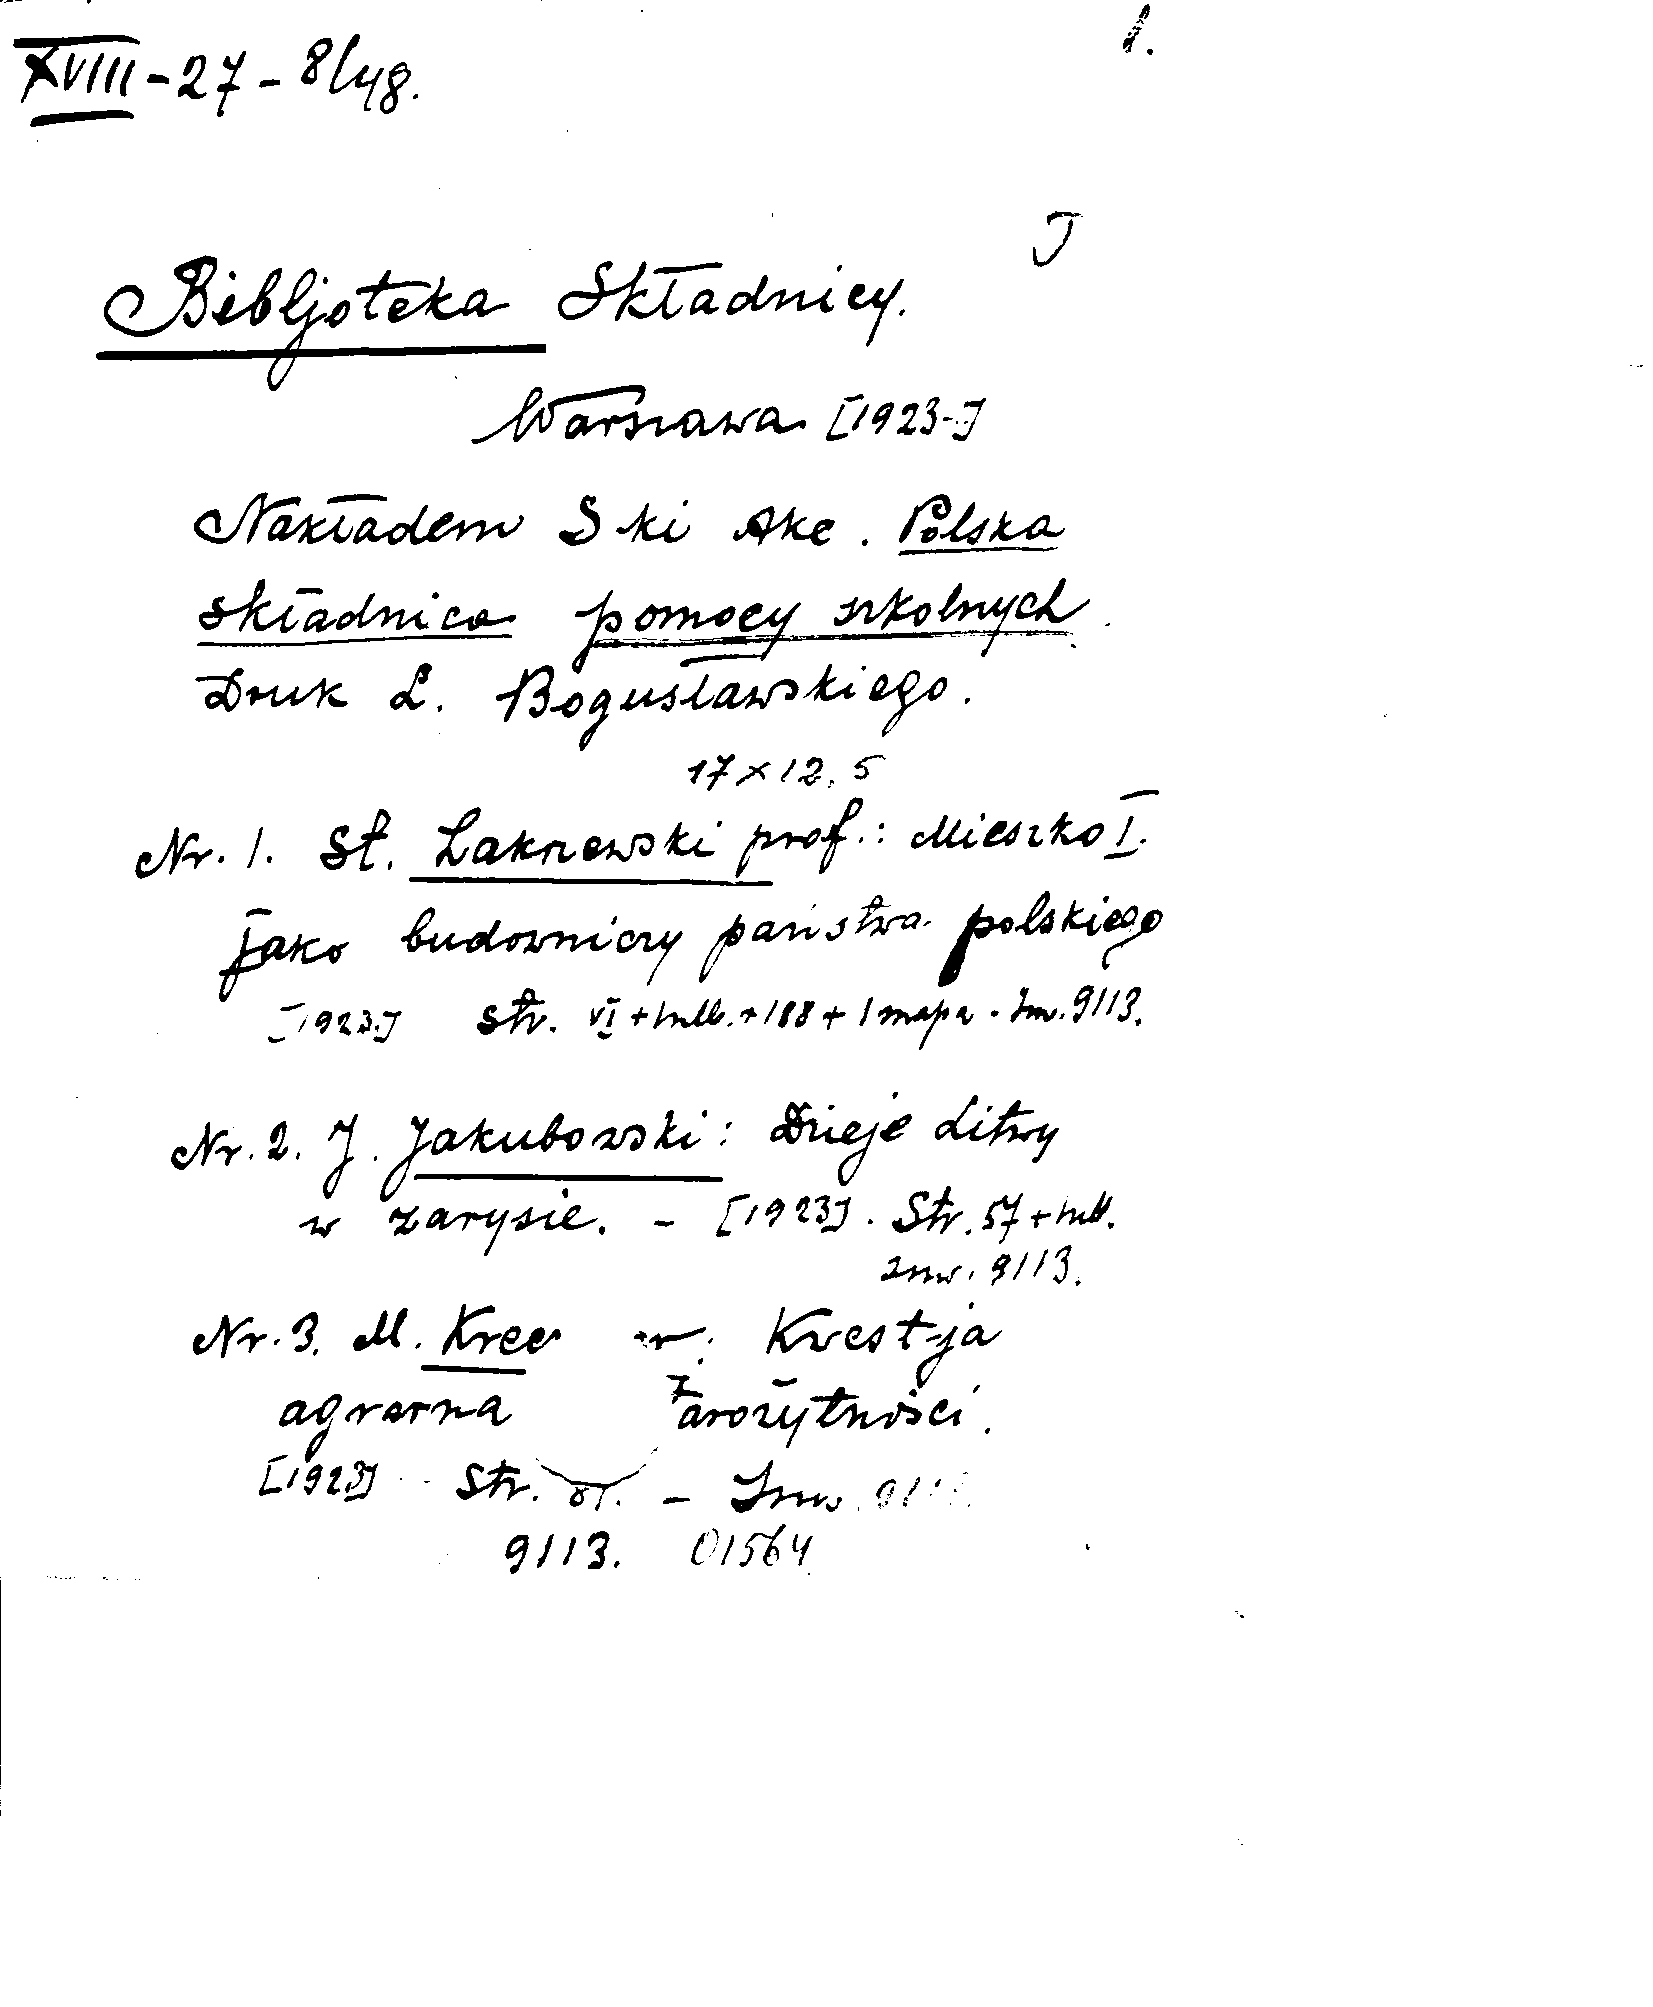 XVIII-27-8/48.
1.
J
Bibljoteka Składnicy.
Warszawa [1923-]
Nakładem S ki Akc. Polska
składnica pomocy szkolnych.
Druk L. Bogusławskiego.
17 x 12,5
Nr. 1. St. Zakrzewski prof.: Mieszko I.
jako budowniczy państwa polskiego
[1923.] str. VI + 1 nlb. + 188 + 1 mapa - Inw. 9113.
Nr. 2. J. Jakubowski: Dzieje Litwy
w zarysie. - [1923]. Str. 57 + 1 nlb.
inw. 9113.
Nr. 3. M. Kree Kwestja
agrarna
[1923] Str. - Inw.
9113. 01564